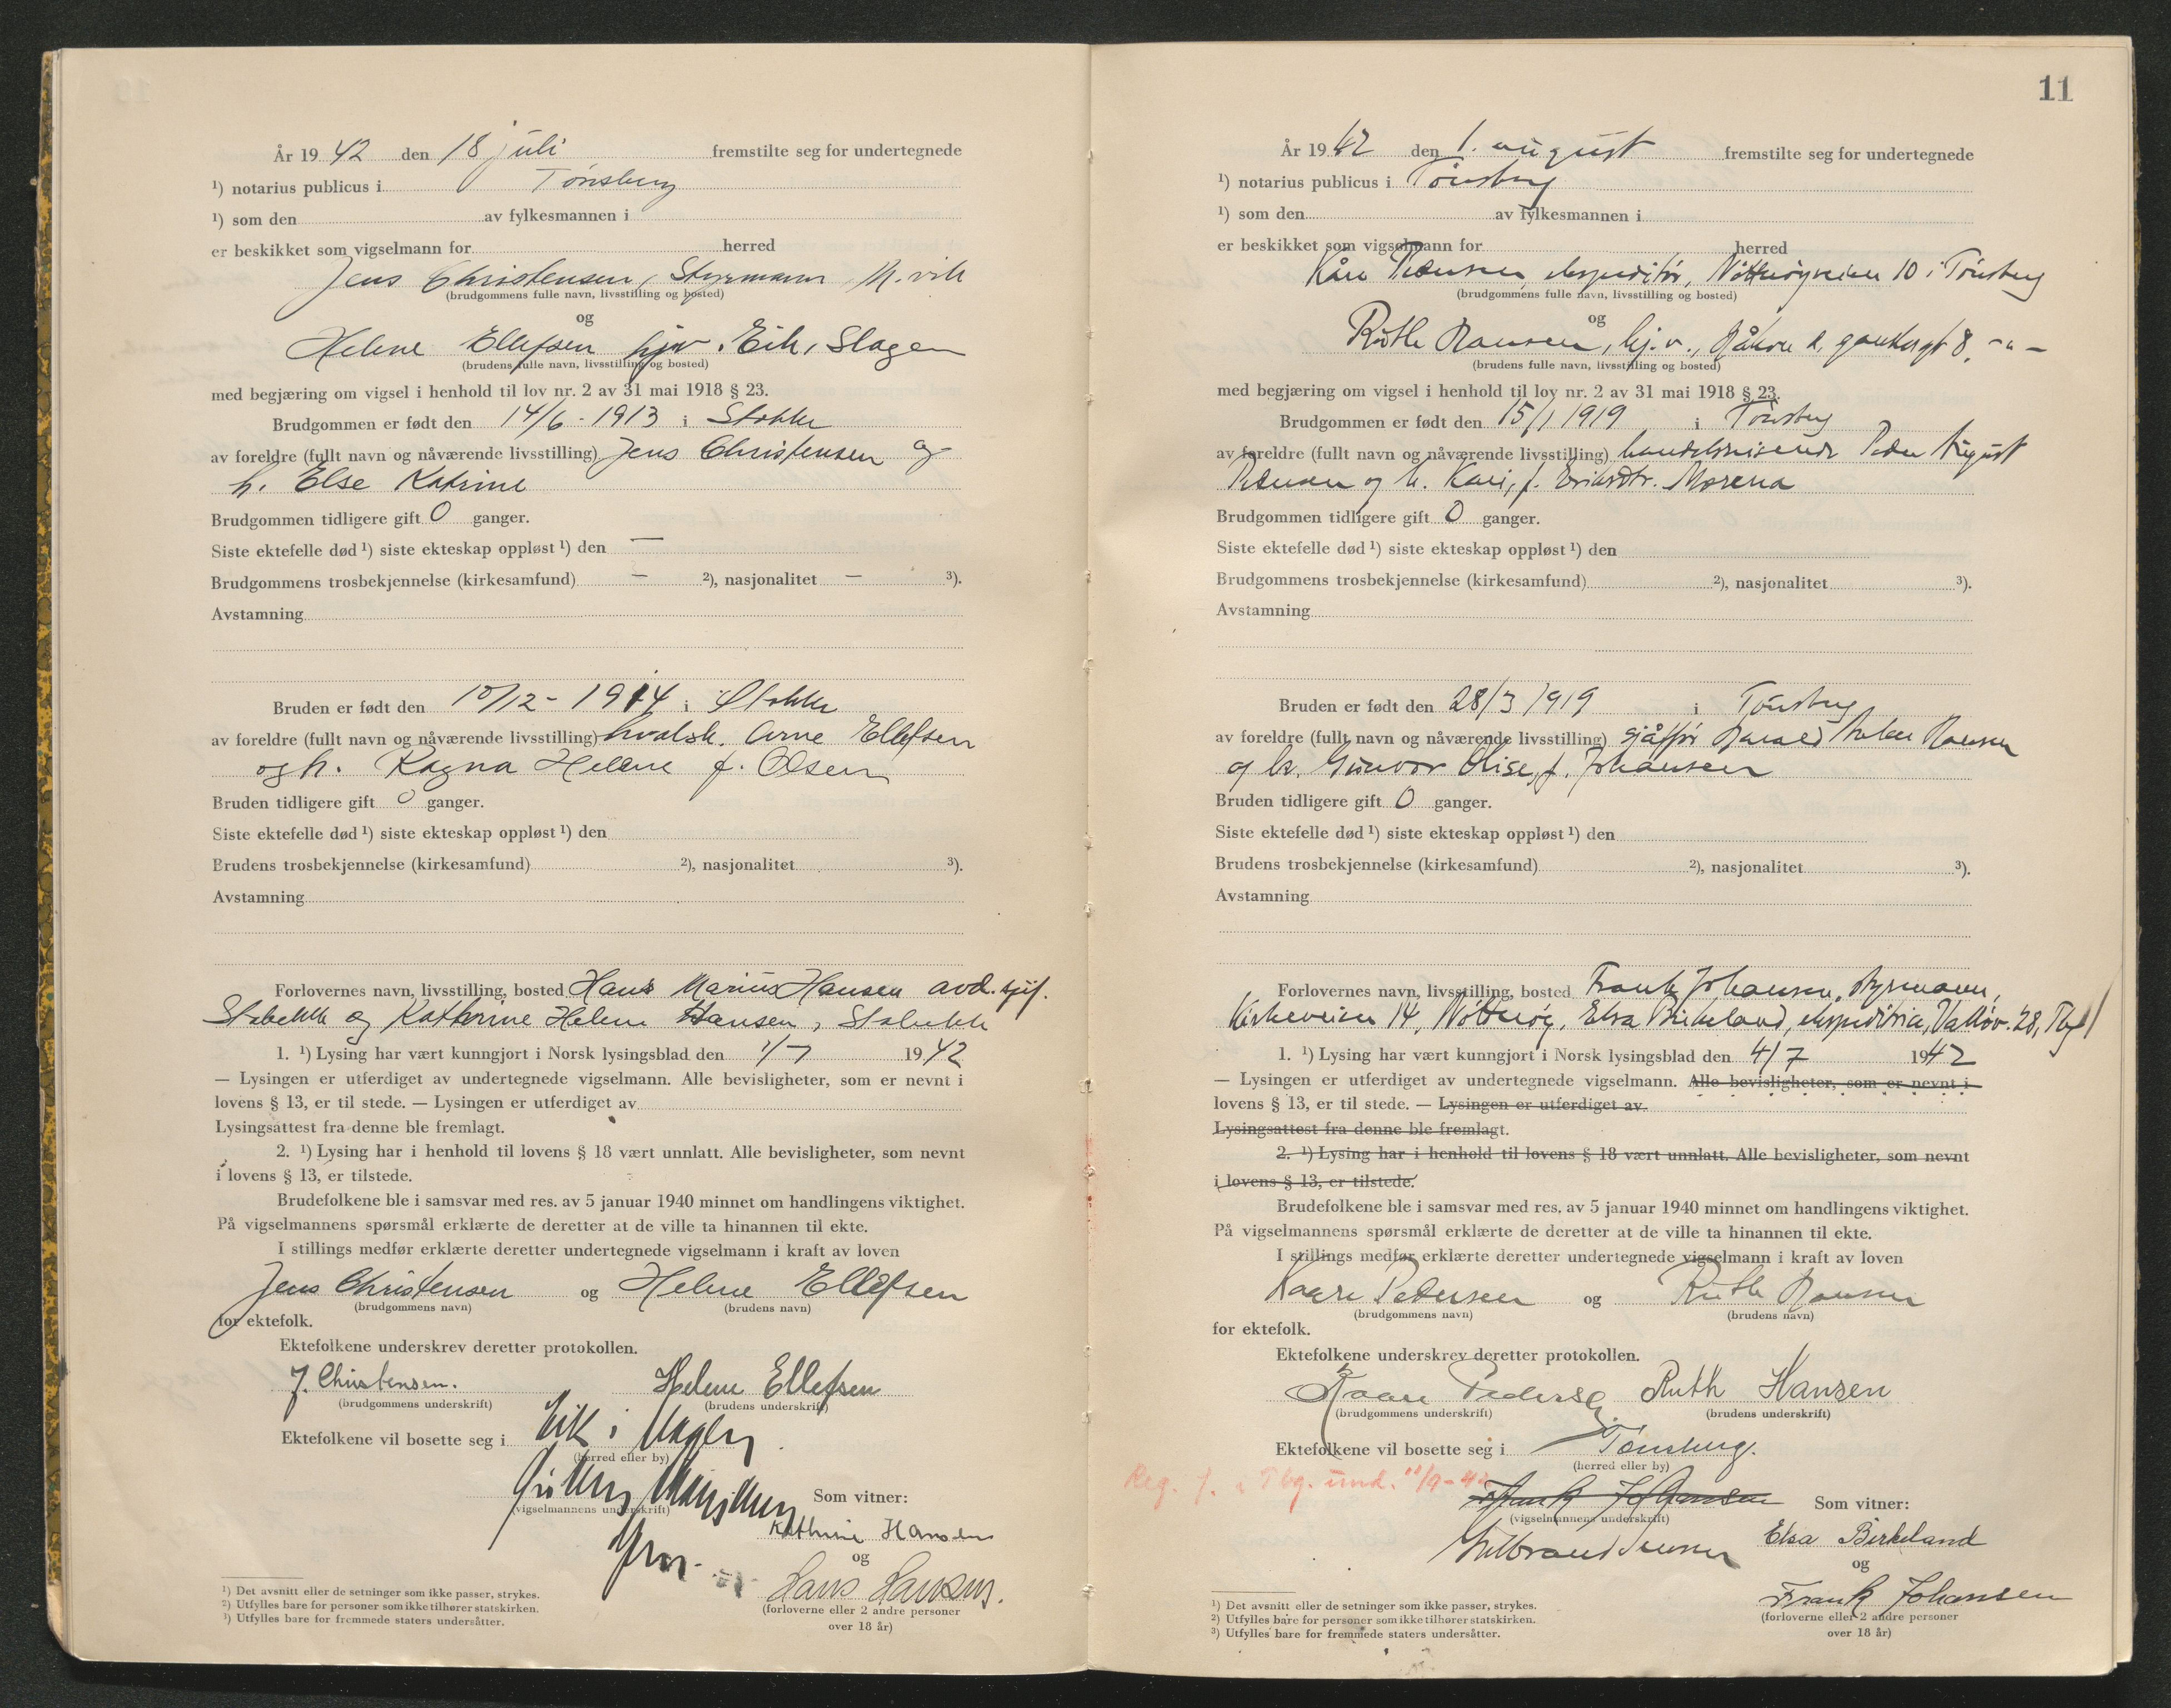 År 1942 den 18 juli fremstilte seg for undertegnede
¹) notarius publicus i Tønsberg
¹) som den av fylkesmannen i
er beskikket som vigselmann for herred
Jens Christensen, Styrmann,
(brudgommens fulle navn, livsstilling og bosted)
og
Helene Ellefsen hjv. Eik, Slagen
(brudens fulle navn, livsstilling og bosted)
med begjæring om vigsel i henhold til lov nr. 2 av 31 mai 1918 § 23.
Brudgommen er født den 14/6 - 1913 i Stokke
av foreldre (fullt navn og nåværende livsstilling) Jens Christensen og
h. Else Katrine
Brudgommen tidligere gift 0 ganger.
Siste ektefelle død ¹) siste ekteskap oppløst ¹) den —
Brudgommens trosbekjennelse (kirkesamfund) — ²), nasjonalitet — ³).
Avstamning
Bruden er født den 10/12 - 1914 i Stokke
av foreldre (fullt navn og nåværende livsstilling) hvalsk. Arne Ellefsen
og h. Ragna Helene f. Olsen
Bruden tidligere gift 0 ganger.
Siste ektefelle død ¹) siste ekteskap oppløst ¹) den
Brudens trosbekjennelse (kirkesamfund) ²), nasjonalitet ³).
Avstamning
Forlovernes navn, livsstilling, bosted Hans Marius Hansen avd. sjef.
Stabekk og Kathrine Helene Hansen, Stabekk
1. ¹) Lysing har vært kunngjort i Norsk lysingsblad den 1/7 1942
— Lysingen er utferdiget av undertegnede vigselmann. Alle bevisligheter, som er nevnt i
lovens § 13, er til stede. — Lysingen er utferdiget av
Lysingsattest fra denne ble fremlagt.
2. ¹) Lysing har i henhold til lovens § 18 vært unnlatt. Alle bevisligheter, som nevnt
i lovens § 13, er tilstede.
Brudefolkene ble i samsvar med res. av 5 januar 1940 minnet om handlingens viktighet.
På vigselmannens spørsmål erklærte de deretter at de ville ta hinannen til ekte.
I stillings medfør erklærte deretter undertegnede vigselmann i kraft av loven
Jens Christensen og Helene Ellefsen
(brudgommens navn) (brudens navn)
for ektefolk.
Ektefolkene underskrev deretter protokollen.
J. Christensen. Helene Ellefsen
(brudgommens underskrift) (brudens underskrift)
Ektefolkene vil bosette seg i Eik i Slagen
(herred eller by)
Som vitner:
(vigselmannens underskrift)
Kathrine Hansen
og
Hans Hansen.
(forloverne eller 2 andre personer
over 18 år)
¹) Det avsnitt eller de setninger som ikke passer, strykes.
²) Utfylles bare for personer som ikke tilhører statskirken.
³) Utfylles bare for fremmede staters undersåtter.
11
År 1942 den 1. august fremstilte seg for undertegnede
¹) notarius publicus i Tønsberg
¹) som den av fylkesmannen i
er beskikket som vigselmann for herred
Kåre Pedersen, ekspeditør, Nøtterøyveien 10 i Tønsberg
(brudgommens fulle navn, livsstilling og bosted)
og
Ruth Hansen, hj.v., Håkon d. 8. -"-
(brudens fulle navn, livsstilling og bosted)
med begjæring om vigsel i henhold til lov nr. 2 av 31 mai 1918 § 23.
Brudgommen er født den 15/1 1919 i Tønsberg
av foreldre (fullt navn og nåværende livsstilling) handelsreisende Peder August
Pedersen og h. Kari, f. Eriksdtr. Morena
Brudgommen tidligere gift 0 ganger.
Siste ektefelle død ¹) siste ekteskap oppløst ¹) den
Brudgommens trosbekjennelse (kirkesamfund) ²), nasjonalitet ³).
Avstamning
Bruden er født den 28/3 1919 i Tønsberg
av foreldre (fullt navn og nåværende livsstilling) sjåfør Harald Hansen
og h. Gunvor Elise, f. Johansen
Bruden tidligere gift 0 ganger.
Siste ektefelle død ¹) siste ekteskap oppløst ¹) den
Brudens trosbekjennelse (kirkesamfund) ²), nasjonalitet ³).
Avstamning
Forlovernes navn, livsstilling, bosted Frank Johansen, styrmann,
Kirkeveien 14, Nøtterøy, Elsa Birkeland, ekspeditrise, Valløv. 28, Tbg
1. ¹) Lysing har vært kunngjort i Norsk lysingsblad den 4/7 1942
— Lysingen er utferdiget av undertegnede vigselmann. Alle bevisligheter, som er nevnt i
lovens § 13, er til stede. — Lysingen er utferdiget av
Lysingsattest fra denne ble fremlagt.
2. ¹) Lysing har i henhold til lovens § 18 vært unnlatt. Alle bevisligheter, som nevnt
i lovens § 13, er tilstede.
Brudefolkene ble i samsvar med res. av 5 januar 1940 minnet om handlingens viktighet.
På vigselmannens spørsmål erklærte de deretter at de ville ta hinannen til ekte.
I stillings medfør erklærte deretter undertegnede vigselmann i kraft av loven
Kaare Pedersen og Ruth Hansen
(brudgommens navn) (brudens navn)
for ektefolk.
Ektefolkene underskrev deretter protokollen.
Kaare Pedersen Ruth Hansen
(brudgommens underskrift) (brudens underskrift)
Ektefolkene vil bosette seg i Tønsberg.
(herred eller by)
Reg. f. Tbg. 11/9-42
Frank Johansen Som vitner:
(vigselmannens underskrift)
Elsa Birkeland
og
Frank Johansen
(forloverne eller 2 andre personer
over 18 år)
¹) Det avsnitt eller de setninger som ikke passer, strykes.
²) Utfylles bare for personer som ikke tilhører statskirken.
³) Utfylles bare for fremmede staters undersåtter.